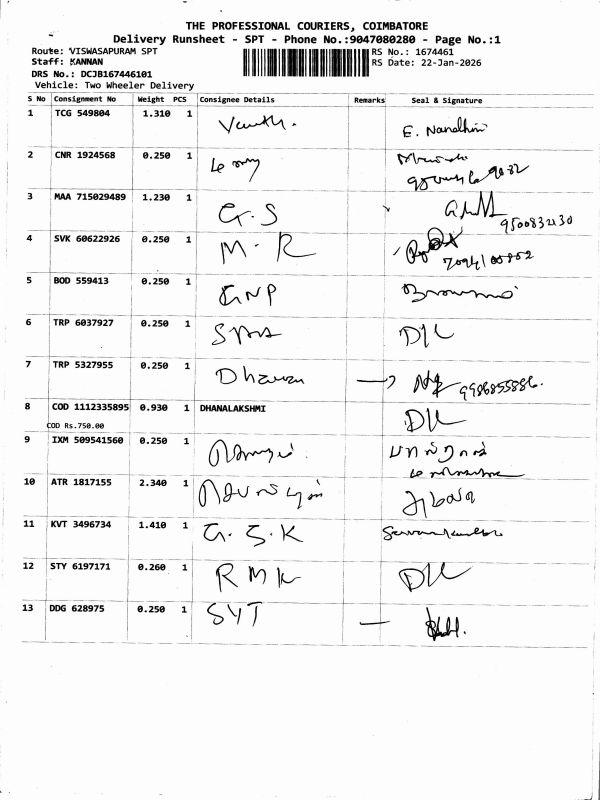 THE PROFESSIONAL COURIERS, COIMBATORE
Delivery Runsheet - SPT - Phone No.:9047080280 - Page No.:1
Route: VISWASAPURAM SPT RS No.: 1674461
Staff: KANNAN RS Date: 22-Jan-2026
DRS No.: DCJB167446101
Vehicle: Two Wheeler Delivery
S No Consignment No Weight PCS Consignee Details Remarks Seal & Signature
1 TCG 549804 1.310 1 E. Nanadhini
2 CNR 1924568 0.250 1
3 MAA 715029489 1.230 1 G.S
4 SVK 60622926 0.250 1 M.R
5 BOD 559413 0.250 1 GNP
6 TRP 6037927 0.250 1
7 TRP 5327955 0.250 1
8 COD 1112335895 0.930 1 DHANALAKSHMI
COD Rs.750.00
9 IXM 509541560 0.250 1
10 ATR 1817155 2.340 1
11 KVT 3496734 1.410 1 G.S.K
12 STY 6197171 0.260 1 RMK
13 DDG 628975 0.250 1 SYT